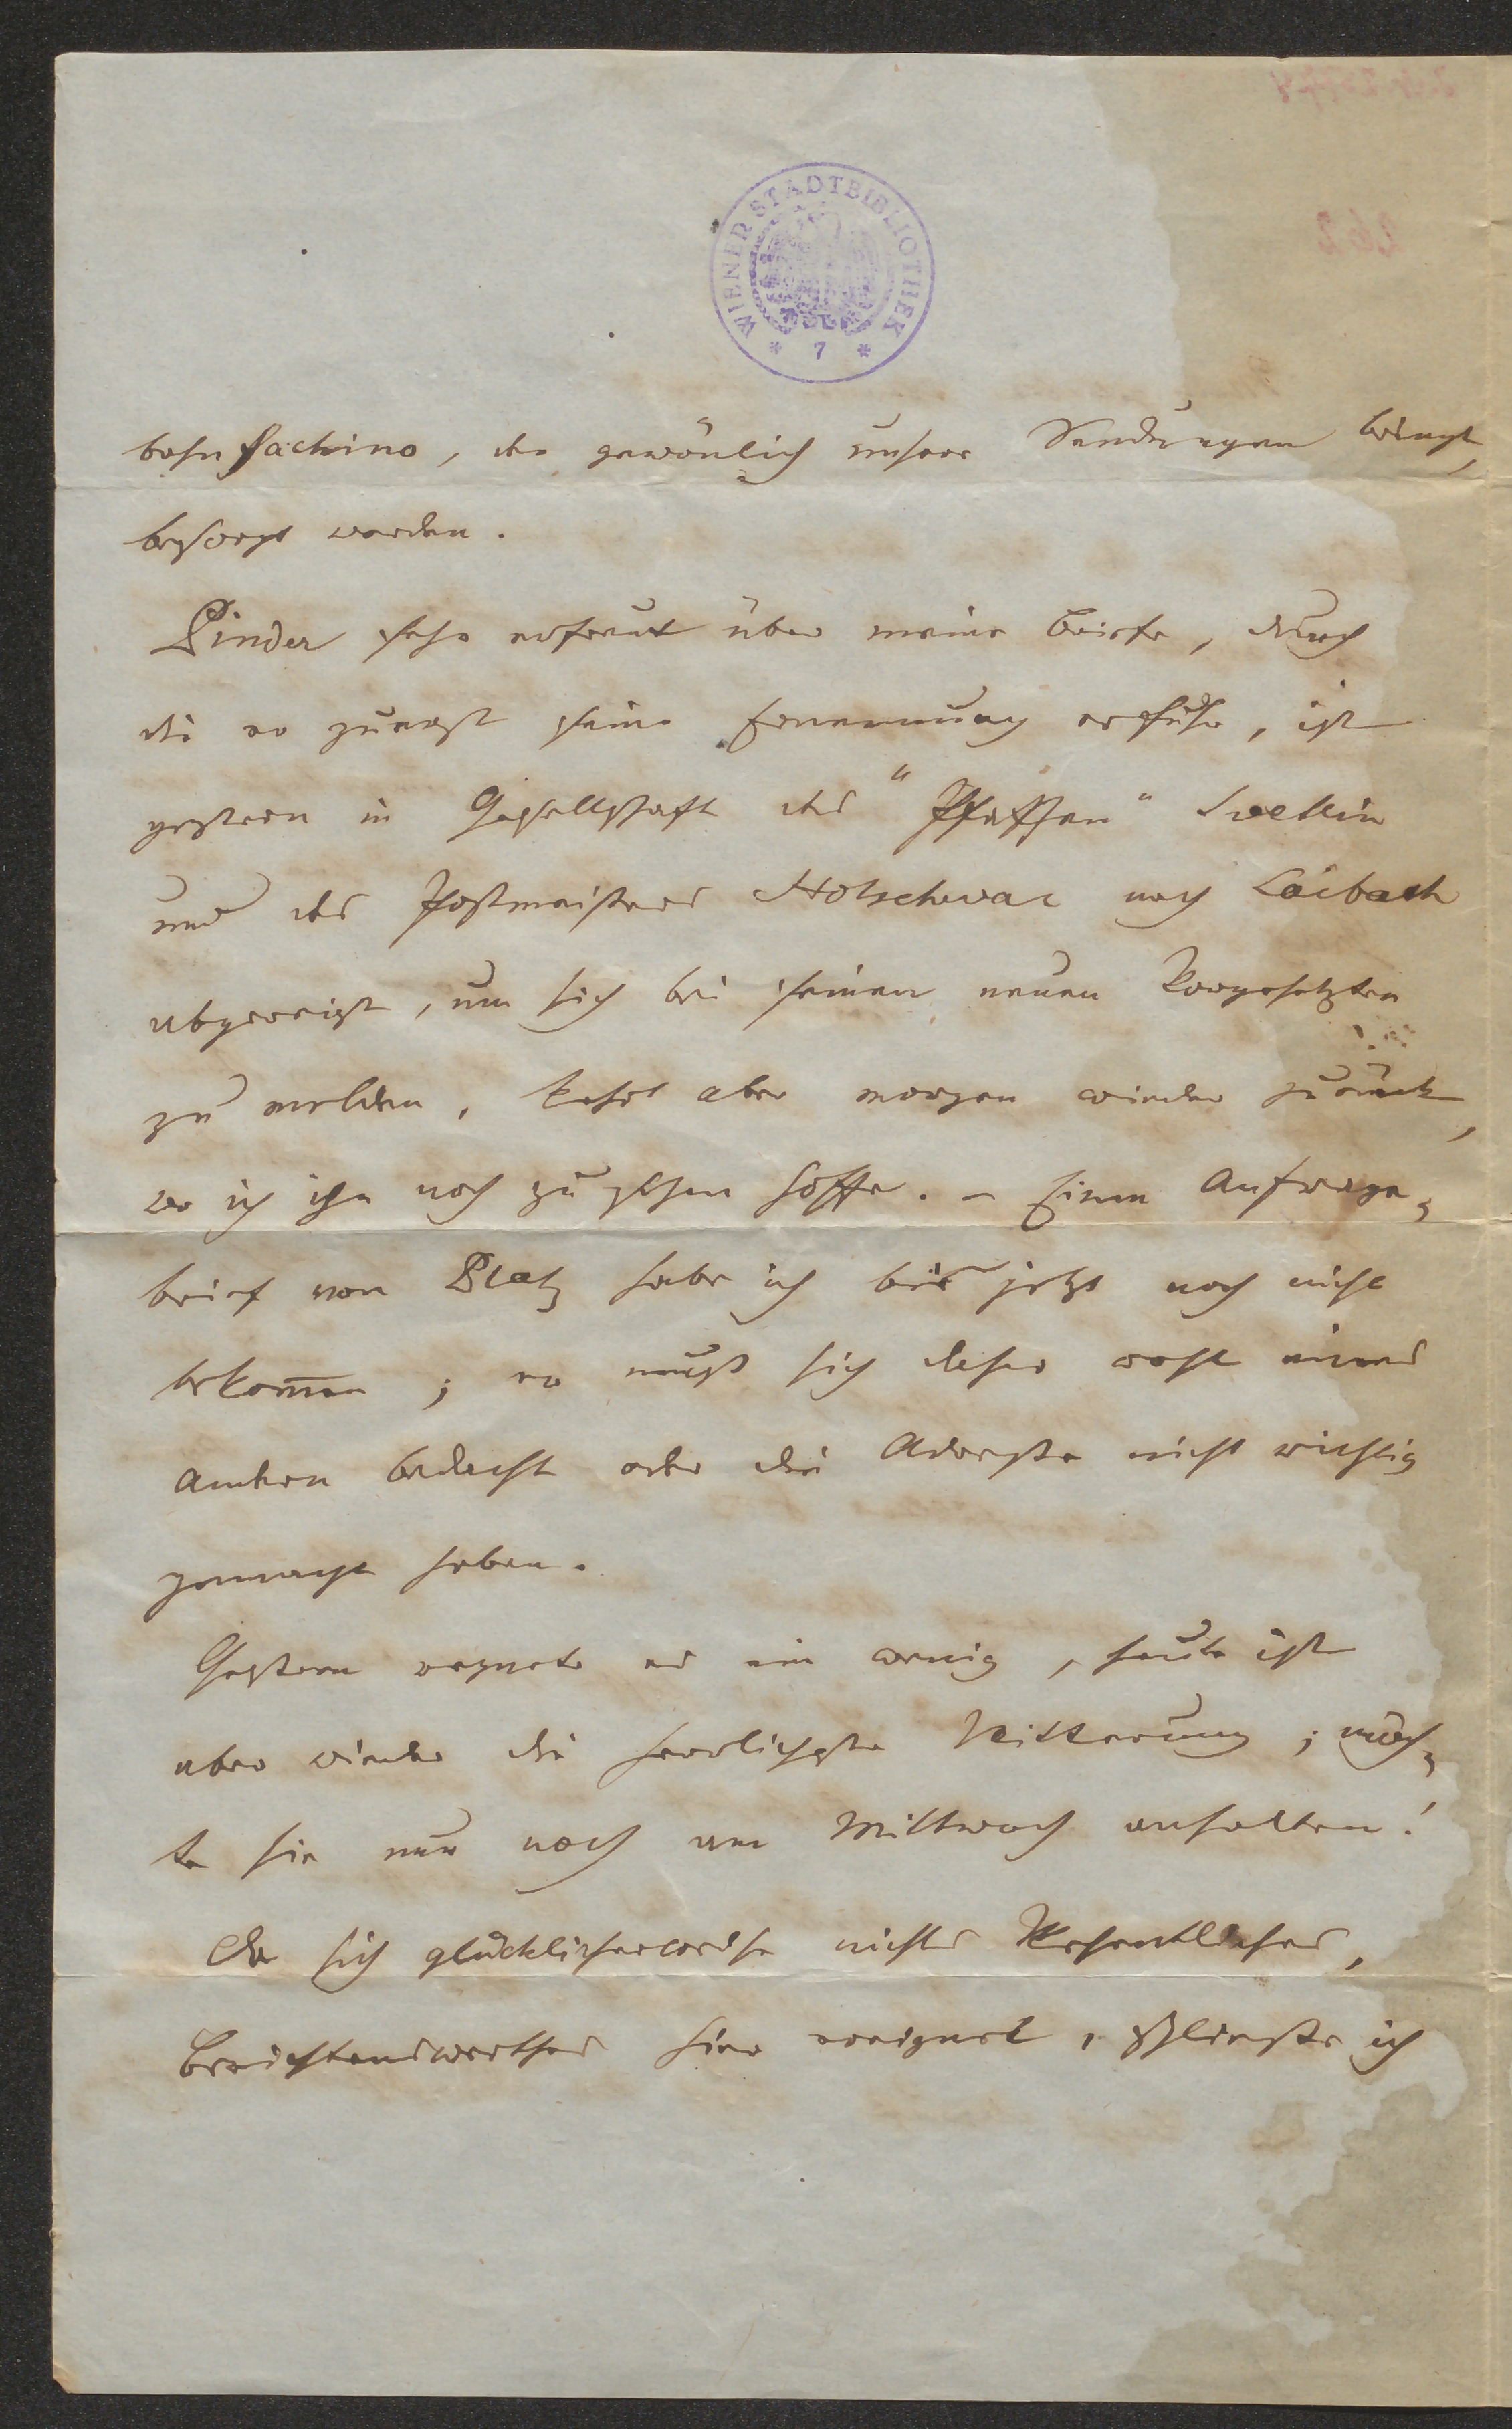 WIENER STADTBIBLIOTHEK
* 7 *
bahnfachino, der gewönlich unsere Sendungen bringt,
besorgt werden.
Pinder sehr erfreut über meine Briefe, durch
die er zuerst seine Ernennung erfuhr, ist
gestern in Gesellschaft des "Pfaffen"
und des Postmeisters Hotschevar nach Laibach
abgereist, um sich bei seinen neuen Vorgesetzten
zu melden, kehrt aber morgen wieder zurück,
wo ich ihn noch zu sehen hoffe. – Einen Anfrage-
brief von Platz habe ich bis jetzt noch nicht
bekomen; er muß sich daher wohl eines
andern bedacht oder die Adresse nicht richtig
gemacht haben.
Gestern regnete es ein wenig, heute ist
aber wieder die herrlichste Witterung; möch-
te sie nur noch am Mittwoch anhalten!
Da sich glücklicherweise nichts Wesentliches,
Berichtenswerthes hier ereignet, schließe ich